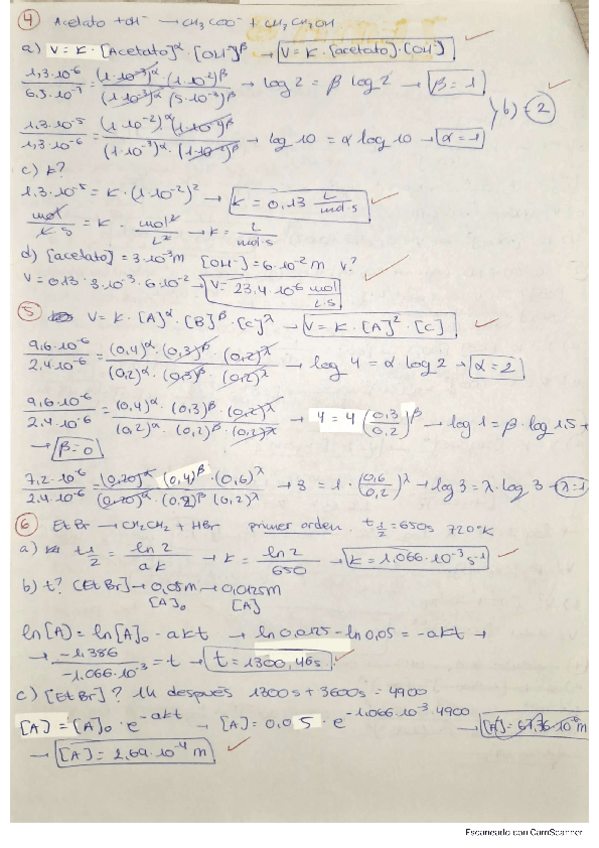 ④ Acetato + OH⁻ → CH₃COO⁻ + CH₃CH₂OH
a) V = K · [Acetato]^α · [OH⁻]^β → V = K · [acetato] · [OH⁻]
1,3·10⁻⁶ / 6,5·10⁻⁷ = (1·10⁻³)^α (1·10⁻²)^β / (1·10⁻³)^α (5·10⁻³)^β → log 2 = β log 2 → β = 1
b) → 2
1,3·10⁻⁵ / 1,3·10⁻⁶ = (1·10⁻²)^α (1·10⁻²)^β / (1·10⁻³)^α · (1·10⁻²)^β → log 10 = α log 10 → α = 1
c) K?
1,3·10⁻⁵ = K · (1·10⁻²)² → K = 0,13 L / mol·s
mol / L·S = K · mol² / L² → K = L / mol·s
d) [acetato] = 3·10⁻³ M [OH⁻] = 6·10⁻² M V?
V = 0,13 · 3·10⁻³ · 6·10⁻² → V = 23,4·10⁻⁶ mol / L·S
⑤ V = K · [A]^α · [B]^β · [C]^λ → V = K · [A]² · [C]
9,6·10⁻⁶ / 2,4·10⁻⁶ = (0,4)^α · (0,3)^β · (0,2)^λ / (0,2)^α · (0,3)^β · (0,2)^λ → log 4 = α log 2 → α = 2
9,6·10⁻⁶ / 2,4·10⁻⁶ = (0,4)^α · (0,3)^β · (0,2)^λ / (0,2)^α · (0,2)^β · (0,2)^λ → 4 = 4 (0,3 / 0,2)^β → log 1 = β · log 1,5 →
→ β = 0
7,2·10⁻⁶ / 2,4·10⁻⁶ = (0,20)^α · (0,4)^β · (0,6)^λ / (0,20)^α · (0,2)^β (0,2)^λ → 3 = 1 · (0,6 / 0,2)^λ → log 3 = λ · log 3 → λ = 1
⑥ EtBr → CH₂CH₂ + HBr primer orden. t½ = 650s 720°K
a) t½ = ln 2 / aK → K = ln 2 / 650 → K = 1,066·10⁻³ s⁻¹
b) t? [EtBr] → 0,05M → 0,0125M
[A]₀ [A]
ln[A] = ln[A]₀ - aKt → ln 0,0125 - ln 0,05 = -aKt →
→ -1,386 / -1,066·10⁻³ = t → t = 1300,46s
c) [EtBr]? 1h después 1300s + 3600s = 4900
[A] = [A]₀ · e^-aKt → [A] = 0,05 · e^-1,066·10⁻³·4900
→ [A] = 2,69·10⁻⁴ M
Escaneado con CamScanner